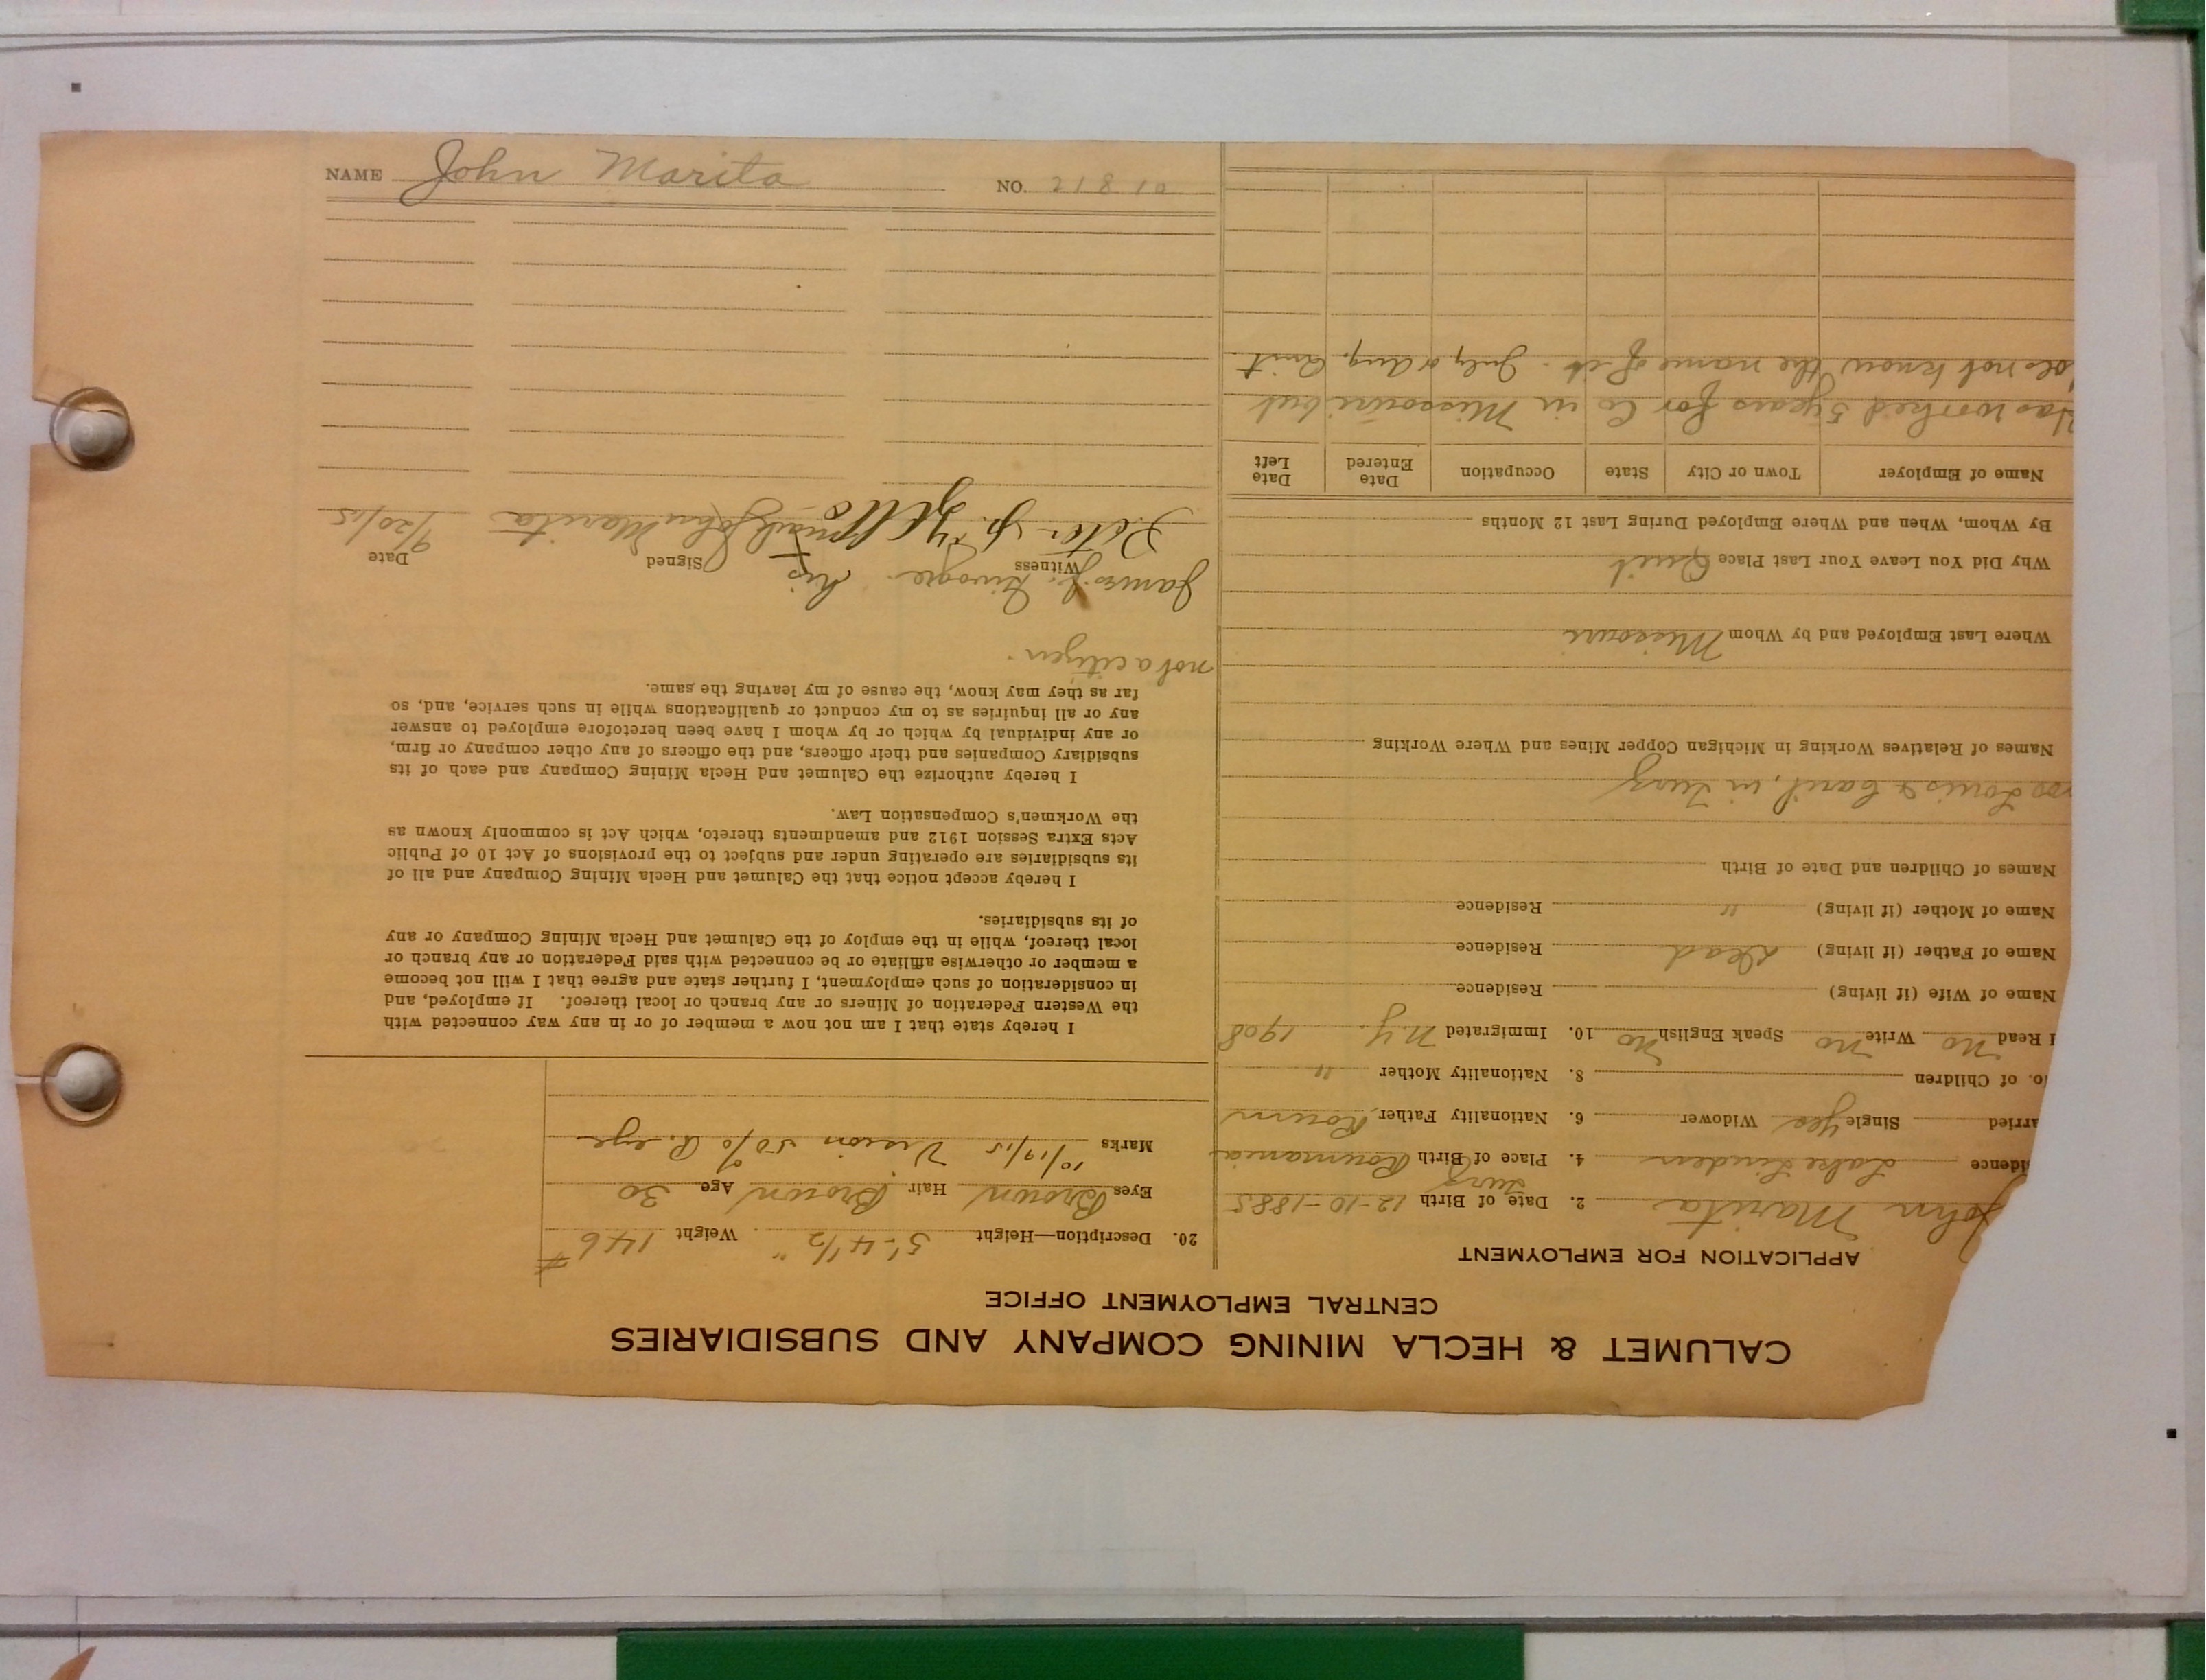 CALUMET & HECLA MINING COMPANY AND SUBSIDIARIES
CENTRAL EMPLOYMENT OFFICE
APPLICATION FOR EMPLOYMENT
John Marita 2. Date of Birth 12-10-1885
idence Lake Linden 4. Place of Birth Roumania
arried Single Yes Widower 6. Nationality Father Roum
o. of Children 8. Nationality Mother "
Read No Write No Speak English No 10. Immigrated N.Y. 1908
Name of Wife (if living) Residence
Name of Father (if living) Dead Residence
Name of Mother (if living) " Residence
Names of Children and Date of Birth
Louis & Carl, in
Names of Relatives Working in Michigan Copper Mines and Where Working
Where Last Employed and by Whom Missouri
Why Did You Leave Your Last Place Quit
By Whom, When and Where Employed During Last 12 Months
Name of Employer Town or City State Occupation Date Entered Date Left
Has worked 5 years for Co in Missouri but
does not know the name of it. July or Aug. Quit
20. Description—Height 5'-4 1/2" Weight 146 #
Eyes Brown Hair Brown Age 30
Marks 10/19/15 Vision 50% R. eye
I hereby state that I am not now a member of or in any way connected with
the Western Federation of Miners or any branch or local thereof. If employed, and
in consideration of such employment, I further state and agree that I will not become
a member or otherwise affiliate or be connected with said Federation or any branch or
local thereof, while in the employ of the Calumet and Hecla Mining Company or any
of its subsidiaries.
I hereby accept notice that the Calumet and Hecla Mining Company and all of
its subsidiaries are operating under and subject to the provisions of Act 10 of Public
Acts Extra Session 1912 and amendments thereto, which Act is commonly known as
the Workmen's Compensation Law.
I hereby authorize the Calumet and Hecla Mining Company and each of its
subsidiary Companies and their officers, and the officers of any other company or firm,
or any individual by which or by whom I have been heretofore employed to answer
any or all inquiries as to my conduct or qualifications while in such service, and, so
far as they may know, the cause of my leaving the same.
not a citizen.
James J. his
Witness Signed Date
Peter P. mark John Marita 9/20/15
NAME John Marita NO. 21810